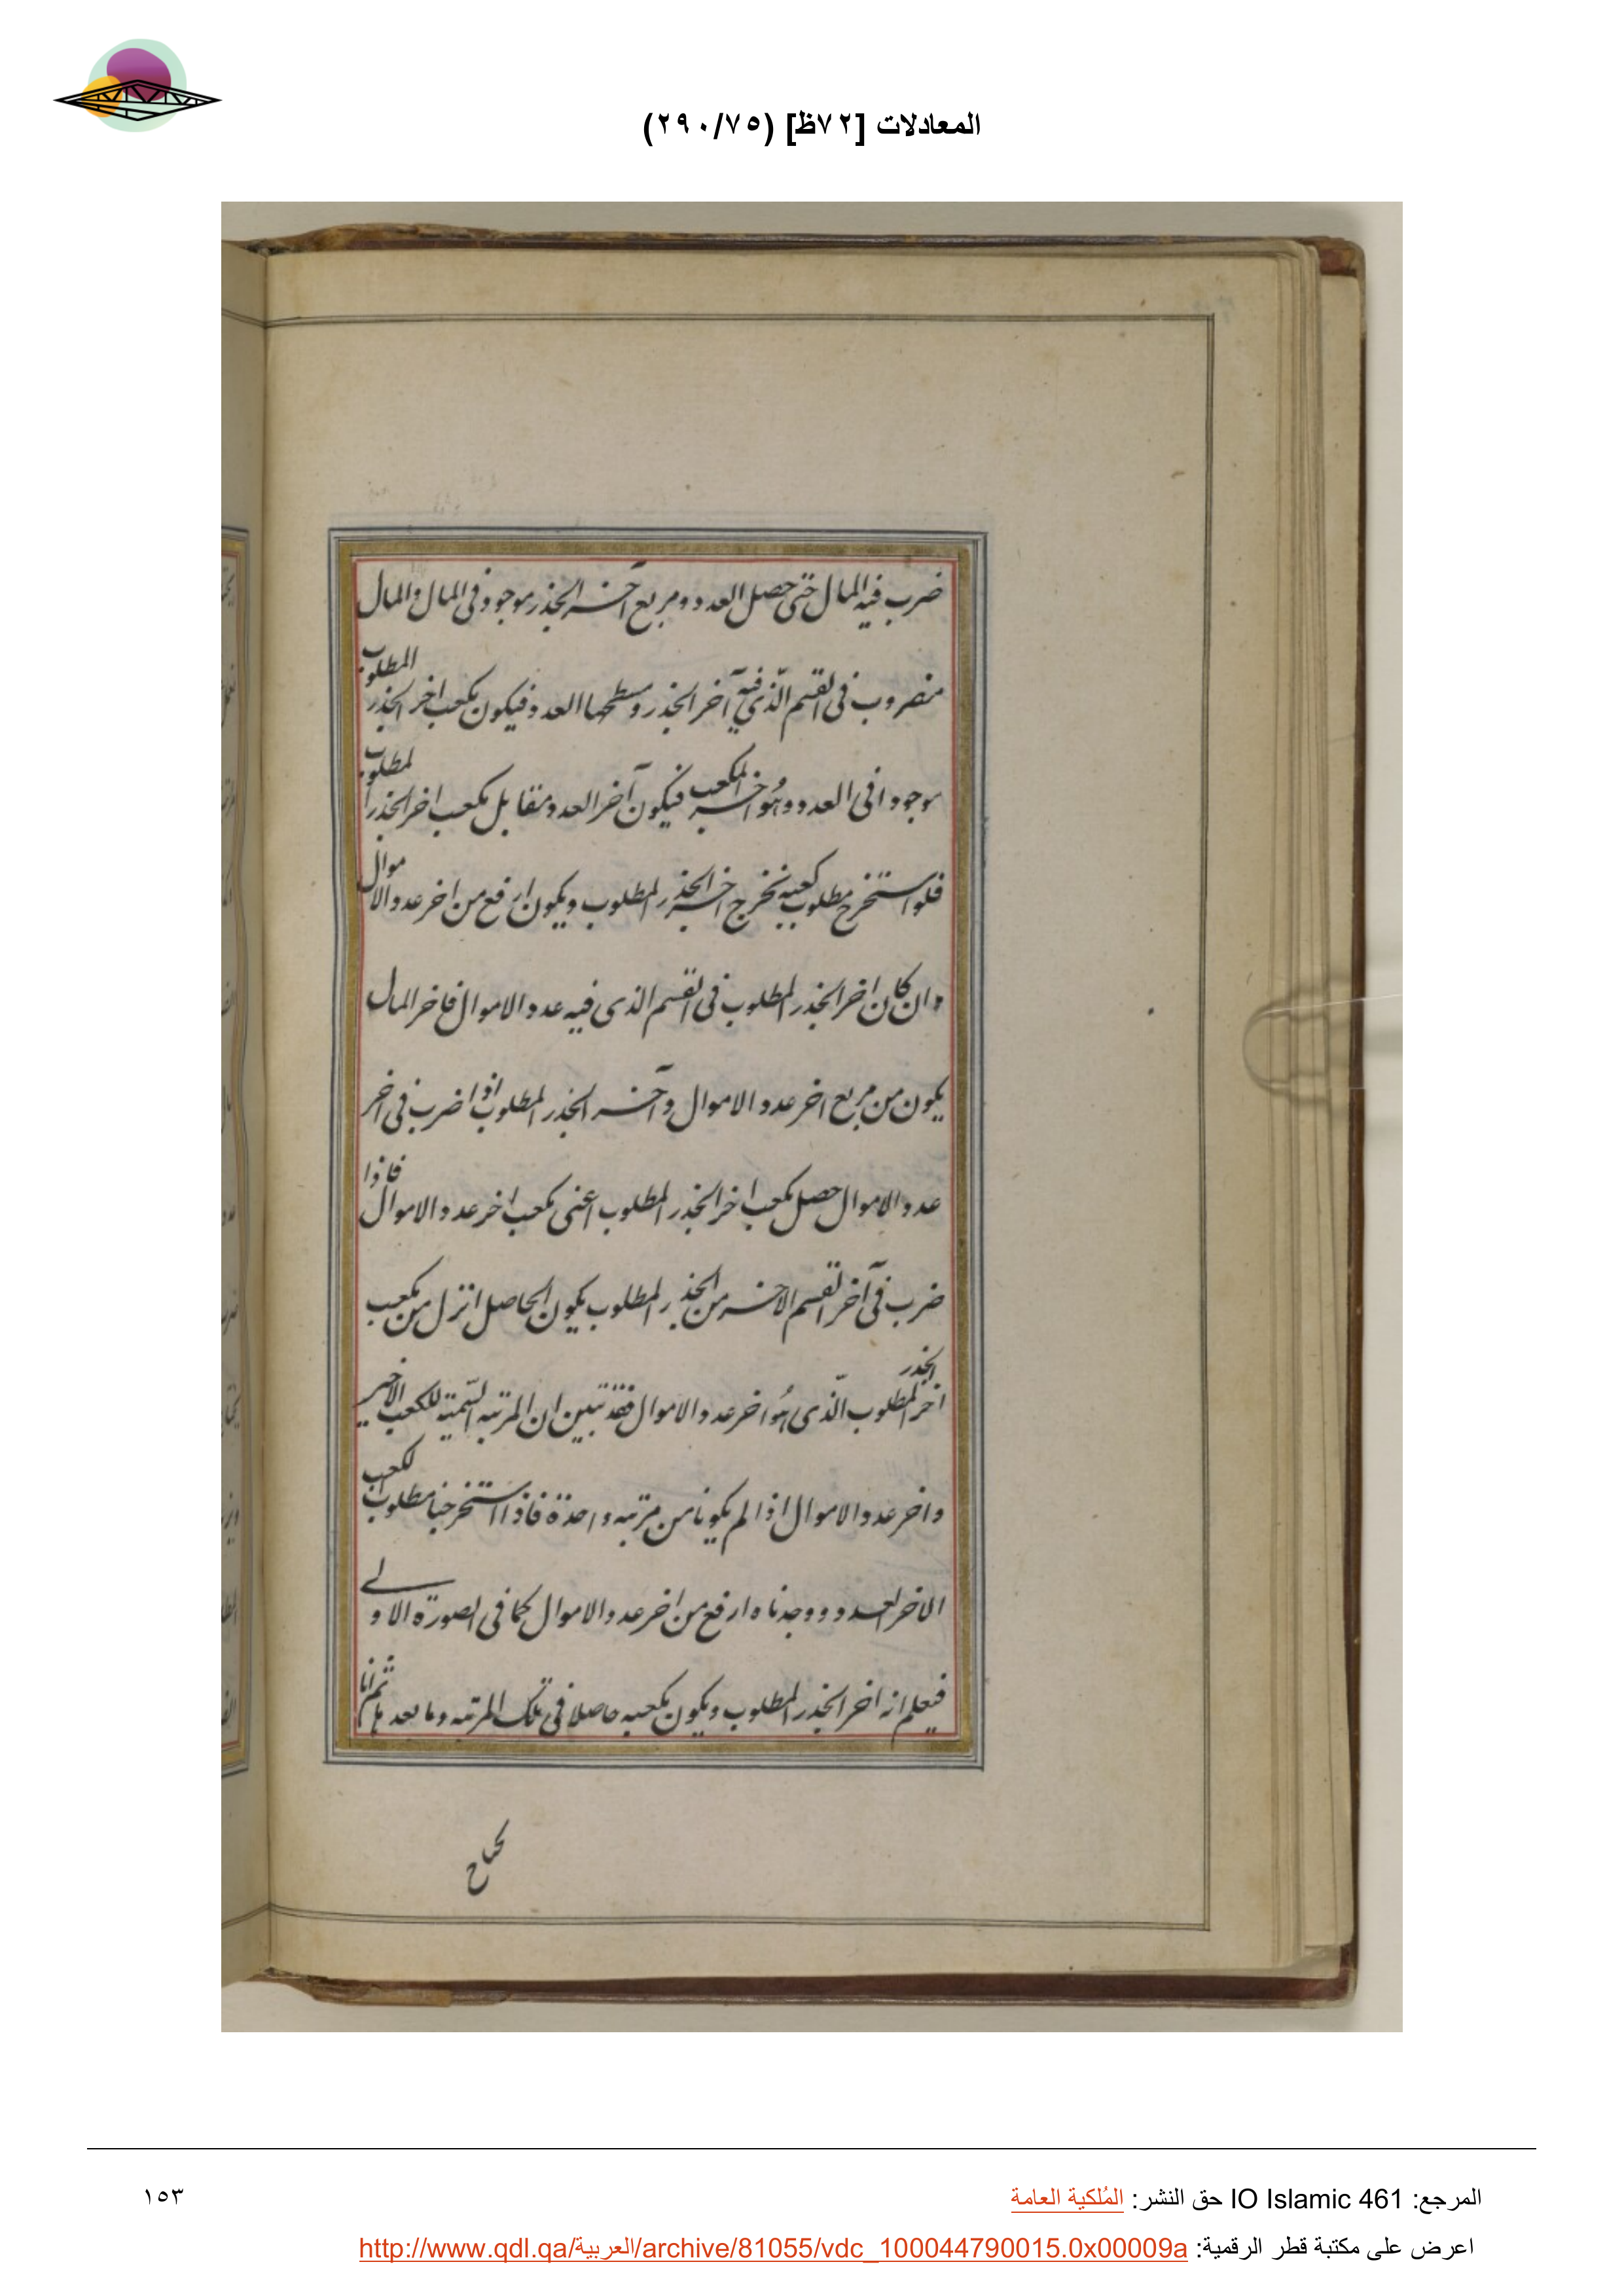 المعادلات [٧٢ظ] (٢٩٠/٧٥)
ضرب فيه المال حتى حصل العدد ومربع آخر الجذر موجود في المال والمال
مضروب في القسم الّذي فيه آخر الجذر وسطحها العدد فيكون مكعب اخر الجذر المطلوب
موجودا في العدد وهُو اخر المكعب فيكون آخر العدد مقابل مكعب اخر الجذر المطلوب
فلو استخرج مطلوب كعبه نخرج اخر الجذر المطلوب ويكون ارفع من اخر عدد الاموال
وان كان اخر الجذر المطلوب في القسم الذي فيه عدد الاموال فاخر المال
يكون من مربع اخر عدد الاموال وآخر الجذر المطلوب اذا ضرب في اخر
عدد الاموال حصل مكعب اخر الجذر المطلوب اعني مكعب اخر عدد الاموال فاذا
ضرب في آخر القسم الاخر من الجذر المطلوب يكون الحاصل انزل من مكعب
اخر الجذر المطلوب الّذي هُو اخر عدد الاموال فقد تبين ان المرتبه السّمية للكعب الاخير
واخر عدد الاموال اذا لم يكونا من مرتبه واحدة فاذا استخرجنا مطلوب الكعب
الاخر العدد ووجدناه ارفع من اخر عدد الاموال كما في الصورة الاولى
فيعلم انه اخر الجذر المطلوب ويكون مكعبه حاصلا في تلك المرتبه وما بعدها ثم انا
نحتاج
المرجع: IO Islamic 461 حق النشر: المُلكية العامة
١٥٣
اعرض على مكتبة قطر الرقمية: http://www.qdl.qa/العربية/archive/81055/vdc_100044790015.0x00009a